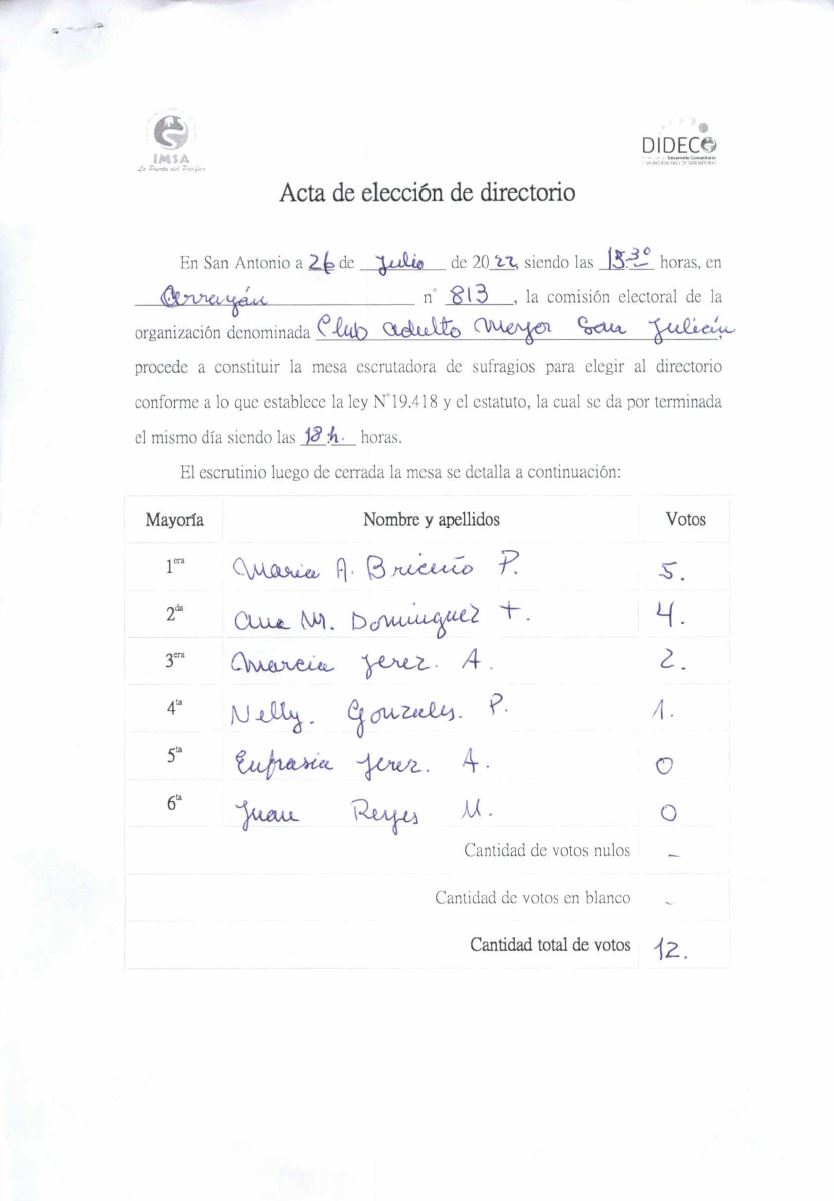 IMSA
La Puerta del Pacífico
DIDECO
Desarrollo Comunitario
MUNICIPALIDAD DE SAN ANTONIO
Acta de elección de directorio
En San Antonio a 26 de Julio de 2022, siendo las 15:30 horas, en
Arrayán n° 813, la comisión electoral de la
organización denominada Club adulto Mayor San Julián
procede a constituir la mesa escrutadora de sufragios para elegir al directorio
conforme a lo que establece la ley N°19.418 y el estatuto, la cual se da por terminada
el mismo día siendo las 18 h. horas.
El escrutinio luego de cerrada la mesa se detalla a continuación:
Mayoría Nombre y apellidos Votos
1era Maria A. Briceño P. 5.
2da Ana M. Dominguez T. 4.
3era Marcia Jerez. A. 2.
4ta Nelly. Gonzales. P. 1.
5ta Eufrasia Jerez. A. 0
6ta Juan Reyes M. 0
Cantidad de votos nulos –
Cantidad de votos en blanco -
Cantidad total de votos 12.